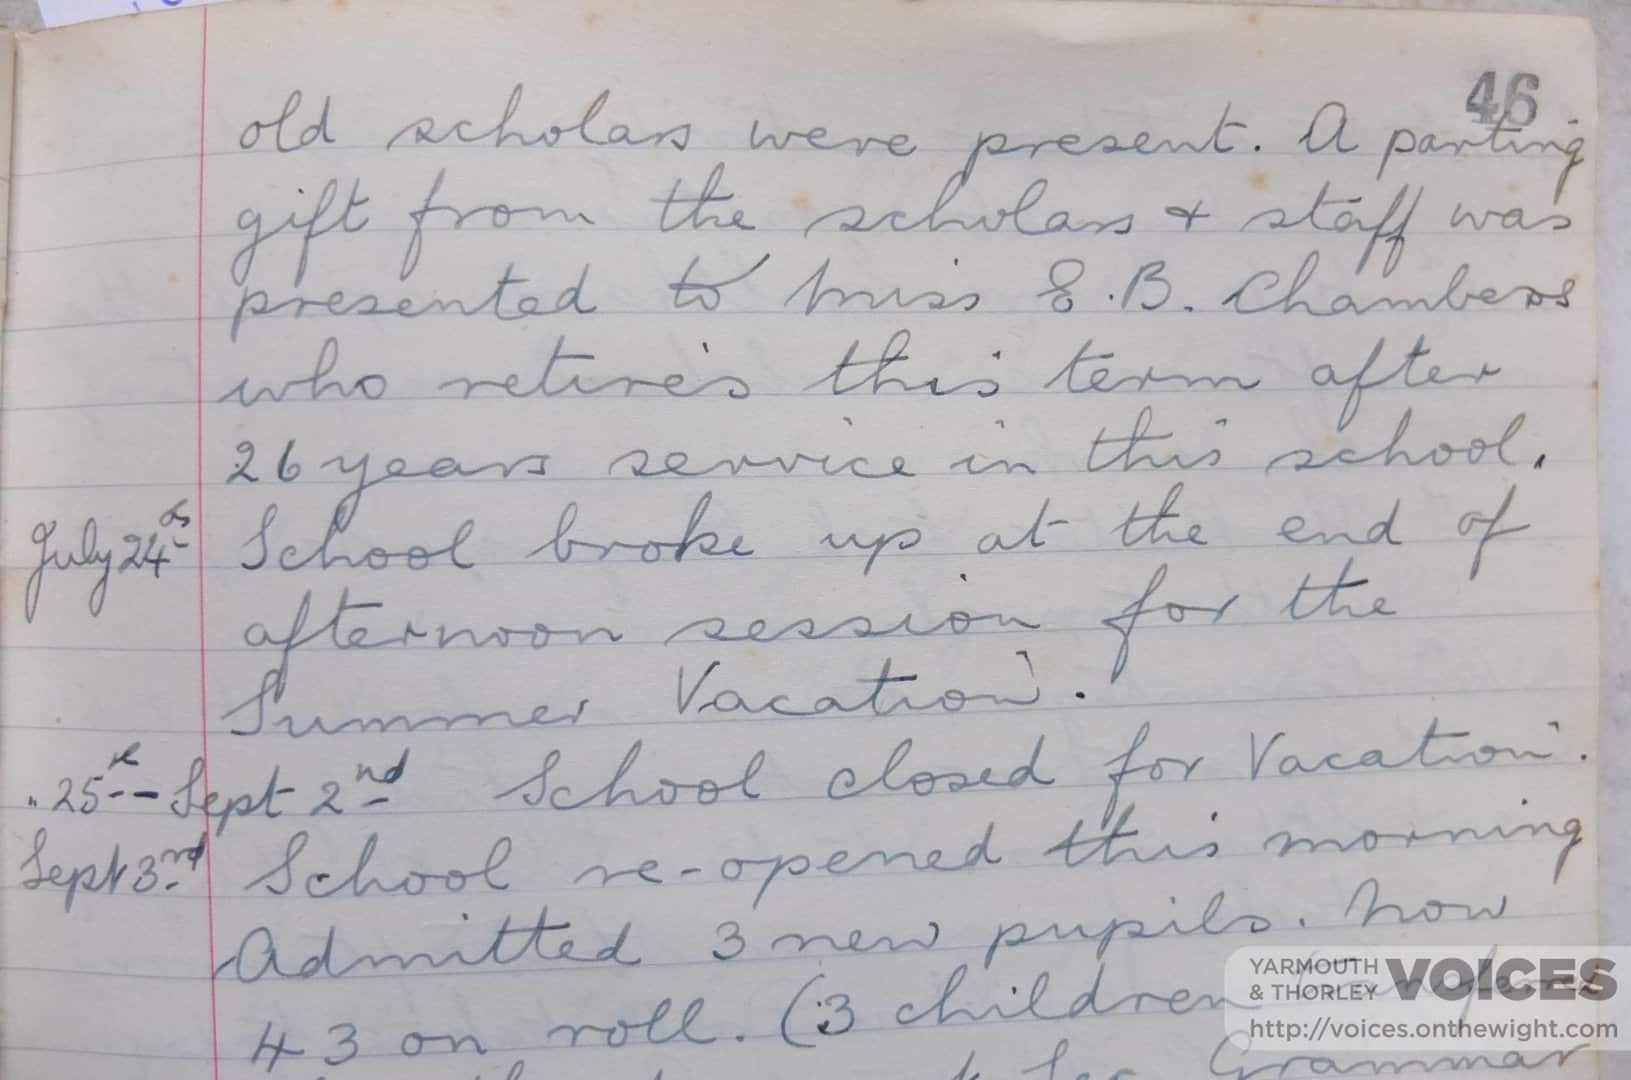 46
old scholars were present. A parting
gift from the scholars & staff was
presented to Miss E.B. Chambers
who retires this term after
26 years service in this school.
July 24th School broke up at the end of
afternoon session for the
Summer Vacation.
" 25th - Sept 2nd School closed for Vacation.
Sept 3rd School re-opened this morning
Admitted 3 new pupils. Now
43 on roll. (3 children
Grammar
YARMOUTH & THORLEY VOICES
http://voices.onthewight.com